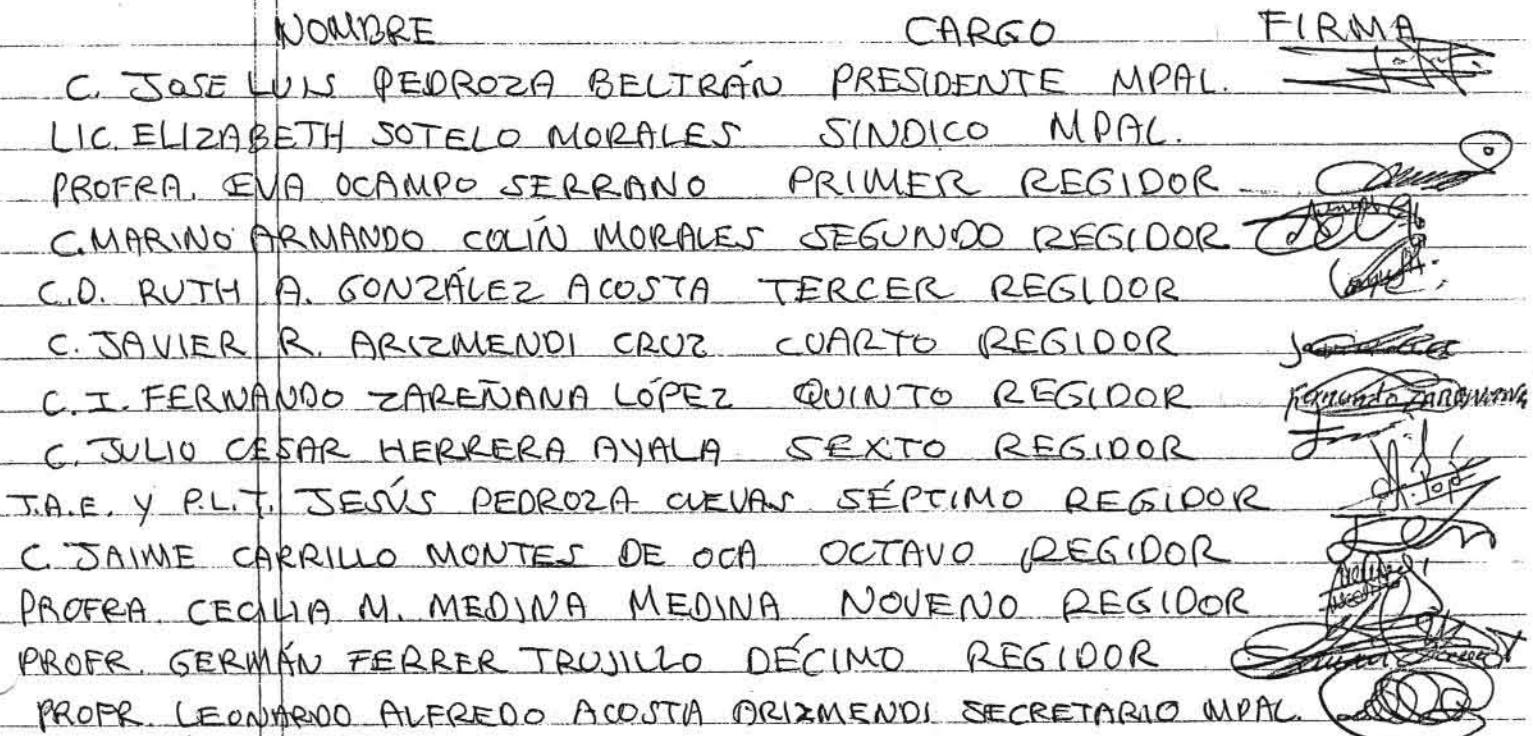 NOMBRE CARGO FIRMA
C. JOSE LUIS PEDROZA BELTRÁN PRESIDENTE MPAL.
LIC. ELIZABETH SOTELO MORALES SINDICO MPAL.
PROFRA. EVA OCAMPO SERRANO PRIMER REGIDOR
C. MARINO ARMANDO COLÍN MORALES SEGUNDO REGIDOR
C.D. RUTH A. GONZÁLEZ ACOSTA TERCER REGIDOR
C. JAVIER R. ARIZMENDI CRUZ CUARTO REGIDOR
C. I. FERNANDO ZAREÑANA LÓPEZ QUINTO REGIDOR Fernando ZAREÑANA
C. JULIO CESAR HERRERA AYALA SEXTO REGIDOR
T.A.E. Y P.L.T. JESÚS PEDROZA CUEVAS SÉPTIMO REGIDOR
C. JAIME CARRILLO MONTES DE OCA OCTAVO REGIDOR
PROFRA. CECILIA M. MEDINA MEDINA NOVENO REGIDOR
PROFR. GERMÁN FERRER TRUJILLO DÉCIMO REGIDOR
PROFR. LEONARDO ALFREDO ACOSTA ARIZMENDI SECRETARIO MPAL.